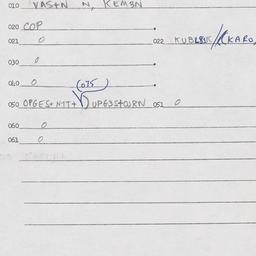 010 VASTN N, KEMEN
020 COP
021 0 022 KUBLBUS/(KARO,
030 0
040 0 (075
050 OPGES+NTT+) UPG3S+OJRN 051 0
060 0
061 0